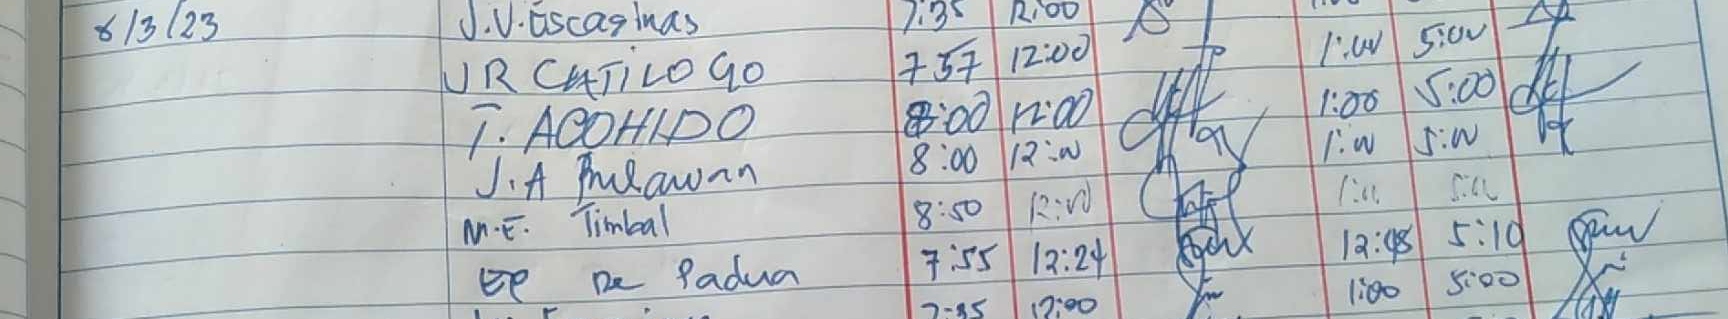 6/3/23 J.V. Escaginas 7:35 12:00
JR CATILOGO 7 57 12:00 1:00 5:00
T. ACOHIDO 8:00 12:00 1:00 5:00
J.A Bulawan 8:00 12:00 1:00 5:00
M.E. Timbal 8:50 12:00 1:00 5:00
EP De Padua 7:55 12:24 12:48 5:10
7:35 12:00 1:00 5:00